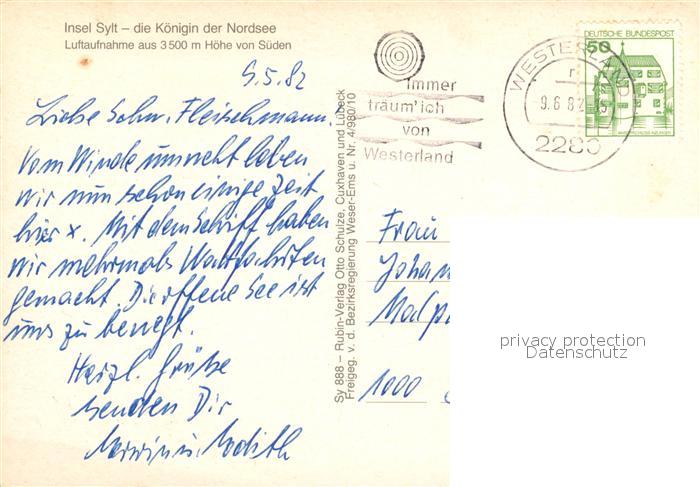 Insel Sylt – die Königin der Nordsee
Luftaufnahme aus 3 500 m Höhe von Süden
9.5.82
Liebe Schw. Fleischmann.
Vom Winde umweht leben
wir nun schon einige Zeit
hier x. Mit dem Schiff haben
wir mehrmals Wattfahrten
gemacht. Die offene See ist
uns zu bewegt.
Herzl. Grüße
senden Dir
Sy 888 – Rubin-Verlag Otto Schulze, Cuxhaven und Lübeck
Freigeg. v. d. Bezirksregierung Weser-Ems u. Nr. 4/980/10
immer
träum' ich
von
Westerland
WESTERLAND
9.6.82
2280
DEUTSCHE BUNDESPOST
50
Frau
Johan
Malp
1000
privacy protection
Datenschutz